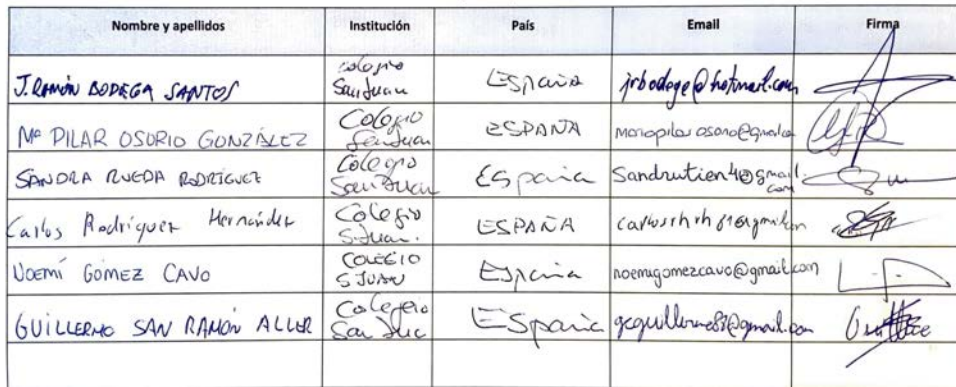 Nombre y apellidos Institución País Email Firma
J. RAMÓN BODEGA SANTOS Colegio San Juan España jrbodega@hotmail.com
Mª PILAR OSORIO GONZÁLEZ Colegio San Juan ESPAÑA
SANDRA RUEDA RODRÍGUEZ Colegio San Juan España Sandrutien4@gmail.com
Carlos Rodríguez Hernández Colegio S. Juan. ESPAÑA
NOEMÍ GÓMEZ CAVO COLEGIO S JUAN España noemigomezcavo@gmail.com
GUILLERMO SAN RAMÓN ALLER Colegio San España